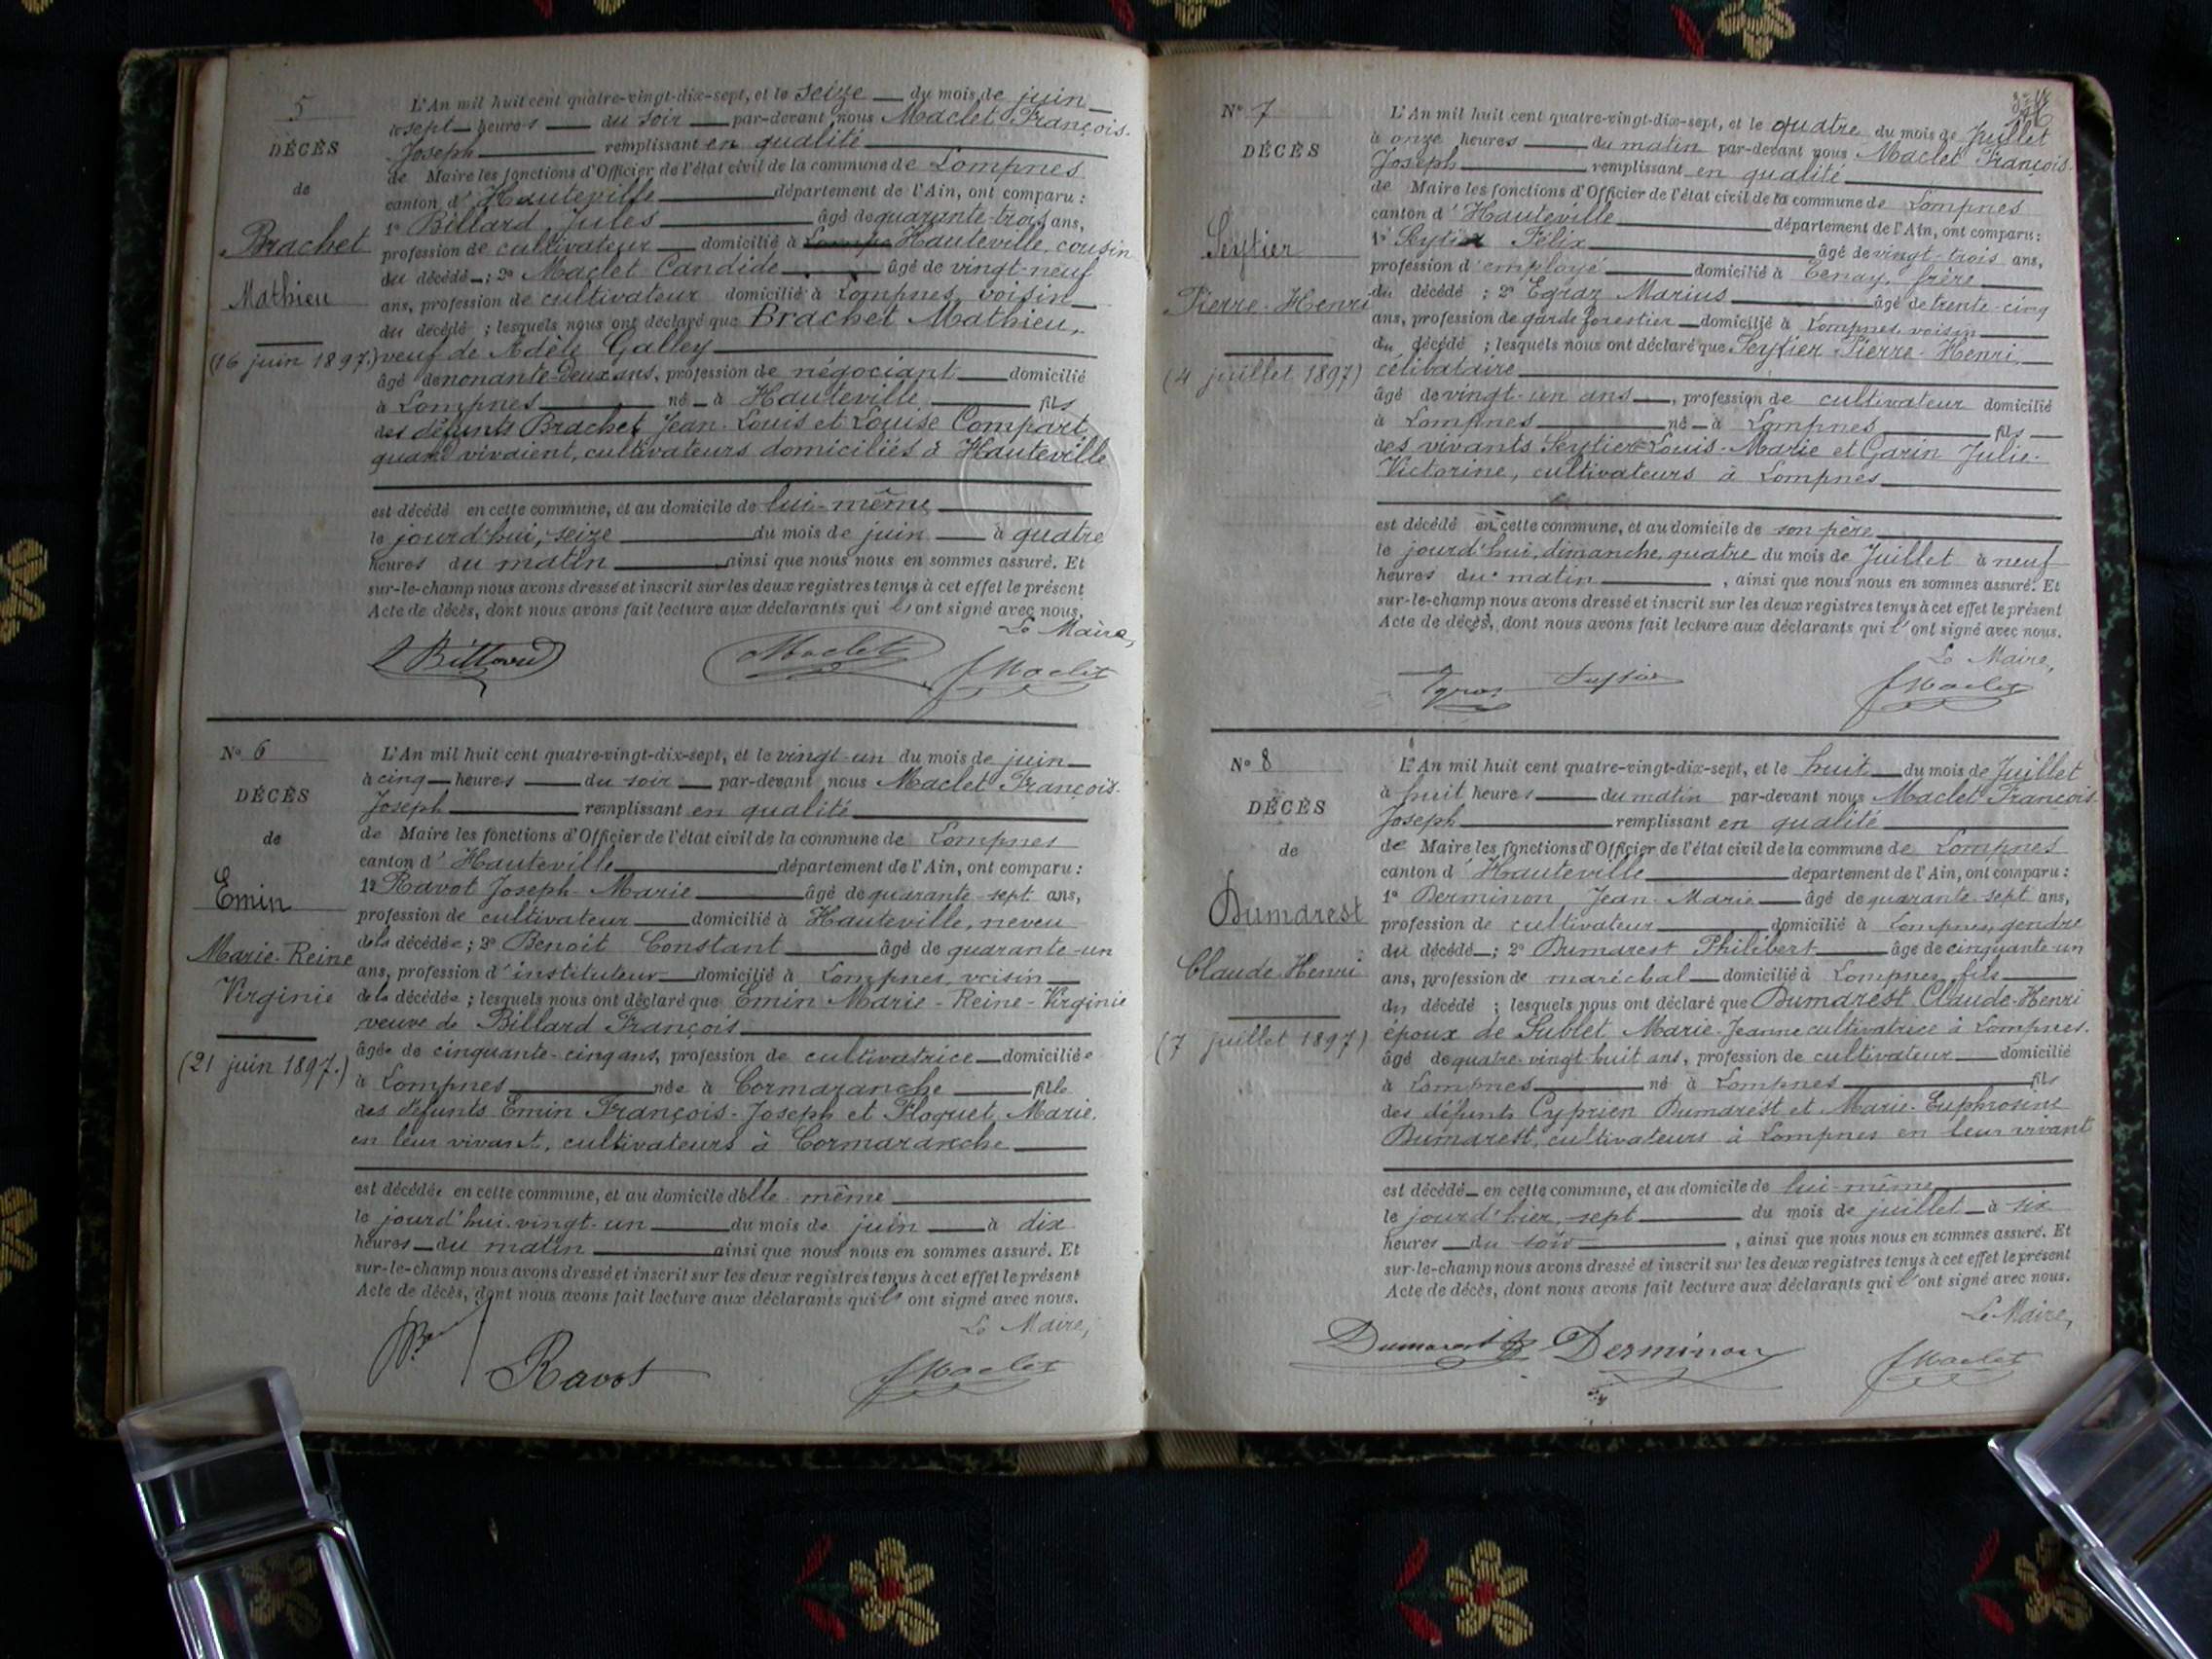 5
DÉCÈS
de
Brachet
Mathieu
(16 juin 1897.)
L'An mil huit cent quatre-vingt-dix-sept, et le seize du mois de juin
à sept heures du soir par-devant nous Maclet François-
Joseph remplissant en qualité
de Maire les fonctions d'Officier de l'état civil de la commune de Lompnes
canton d'Hauteville département de l'Ain, ont comparu :
1º Billard Jules âgé de quarante-trois ans,
profession de cultivateur domicilié à Hauteville, cousin
du décédé ; 2º Maclet Candide âgé de vingt-neuf
ans, profession de cultivateur domicilié à Lompnes, voisin
du décédé ; lesquels nous ont déclaré que Brachet Mathieu,
veuf de Adèle Galley
âgé de nonante-deux ans, profession de négociant domicilié
à Lompnes né à Hauteville fils
des défunts Brachet Jean-Louis et Louise Compart
quand vivaient, cultivateurs domiciliés à Hauteville
est décédé en cette commune, et au domicile de lui-même
le jourd'hui, seize du mois de juin à quatre
heures du matin ainsi que nous nous en sommes assuré. Et
sur-le-champ nous avons dressé et inscrit sur les deux registres tenus à cet effet le présent
Acte de décès, dont nous avons fait lecture aux déclarants qui l'ont signé avec nous.
Le Maire,
Billard Maclet J Maclet
Nº 6
DÉCÈS
de
Emin
Marie-Reine
Virginie
(21 juin 1897.)
L'An mil huit cent quatre-vingt-dix-sept, et le vingt-un du mois de juin
à cinq heures du soir par-devant nous Maclet François-
Joseph remplissant en qualité
de Maire les fonctions d'Officier de l'état civil de la commune de Lompnes
canton d'Hauteville département de l'Ain, ont comparu :
1º Ravot Joseph-Marie âgé de quarante-sept ans,
profession de cultivateur domicilié à Hauteville, neveu
de la décédée ; 2º Benoit Constant âgé de quarante-un
ans, profession d'instituteur domicilié à Lompnes, voisin
de la décédée ; lesquels nous ont déclaré que Emin Marie-Reine-Virginie
veuve de Billard François
âgée de cinquante-cinq ans, profession de cultivatrice domiciliée
à Lompnes née à Cormaranche fille
des défunts Emin François-Joseph et Floquet Marie.
en leur vivant, cultivateurs à Cormaranche
est décédée en cette commune, et au domicile d'elle-même
le jourd'hui vingt-un du mois de juin à dix
heures du matin ainsi que nous nous en sommes assuré. Et
sur-le-champ nous avons dressé et inscrit sur les deux registres tenus à cet effet le présent
Acte de décès, dont nous avons fait lecture aux déclarants qui l'ont signé avec nous.
Le Maire,
Ravot J Maclet
Nº 7
DÉCÈS
Seytier
Pierre-Henri
(4 juillet 1897)
L'An mil huit cent quatre-vingt-dix-sept, et le quatre du mois de Juillet
à onze heures du matin par-devant nous Maclet François-
Joseph remplissant en qualité
de Maire les fonctions d'Officier de l'état civil de la commune de Lompnes
canton d'Hauteville département de l'Ain, ont comparu :
1º Seytier Félix âgé de vingt-trois ans,
profession d'employé domicilié à Tenay, frère
du décédé ; 2º Egraz Marius âgé de trente-cinq
ans, profession de garde forestier domicilié à Lompnes, voisin
du décédé ; lesquels nous ont déclaré que Seytier Pierre-Henri
célibataire
âgé de vingt-un ans, profession de cultivateur domicilié
à Lompnes né à Lompnes fils
des vivants Seytier Louis-Marie et Garin Julie-
Victorine, cultivateurs à Lompnes
est décédé en cette commune, et au domicile de son père
le jourd'hui, dimanche, quatre du mois de Juillet à neuf
heures du matin, ainsi que nous nous en sommes assuré. Et
sur-le-champ nous avons dressé et inscrit sur les deux registres tenus à cet effet le présent
Acte de décès, dont nous avons fait lecture aux déclarants qui l'ont signé avec nous.
Le Maire,
J Maclet
Nº 8
DÉCÈS
de
Dumarest
Claude-Henri
(7 juillet 1897)
L'An mil huit cent quatre-vingt-dix-sept, et le huit du mois de Juillet
à huit heures du matin par-devant nous Maclet François-
Joseph remplissant en qualité
de Maire les fonctions d'Officier de l'état civil de la commune de Lompnes
canton d'Hauteville département de l'Ain, ont comparu :
1º Derminon Jean-Marie âgé de quarante-sept ans,
profession de cultivateur domicilié à Lompnes, gendre
du décédé ; 2º Dumarest Philibert âgé de cinquante-un
ans, profession de maréchal domicilié à Lompnes, fils
du décédé ; lesquels nous ont déclaré que Dumarest Claude-Henri
époux de Sublet Marie-Jeanne cultivatrice à Lompnes.
âgé de quatre-vingt-huit ans, profession de cultivateur domicilié
à Lompnes né à Lompnes fils
des défunts Cyprien Dumarest et Marie-Euphrosine
Dumarest, cultivateurs à Lompnes en leur vivant
est décédé en cette commune, et au domicile de lui-même
le jourd'hier, sept du mois de juillet à six
heures du soir, ainsi que nous nous en sommes assuré. Et
sur-le-champ nous avons dressé et inscrit sur les deux registres tenus à cet effet le présent
Acte de décès, dont nous avons fait lecture aux déclarants qui l'ont signé avec nous.
Le Maire,
Dumarest Derminon J Maclet